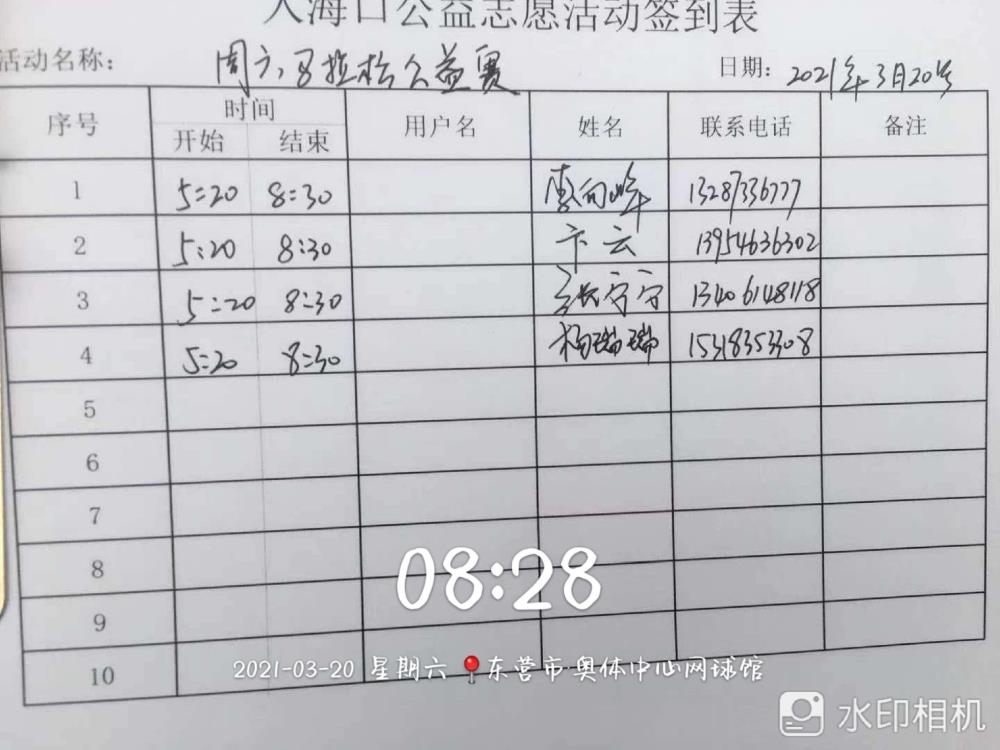 入海口公益志愿活动签到表
活动名称: 周六马拉松公益赛 日期: 2021年3月20号
序号 时间 用户名 姓名 联系电话 备注
开始 结束
1 5:20 8:30 李向峰 13287336777
2 5:20 8:30 卞云 13954636302
3 5:20 8:30 宁宁 13406148118
4 5:20 8:30 杨瑞瑞 15318353308
5
6
7
8
08:28
9
10
2021-03-20 星期六 东营市·奥体中心网球馆
水印相机